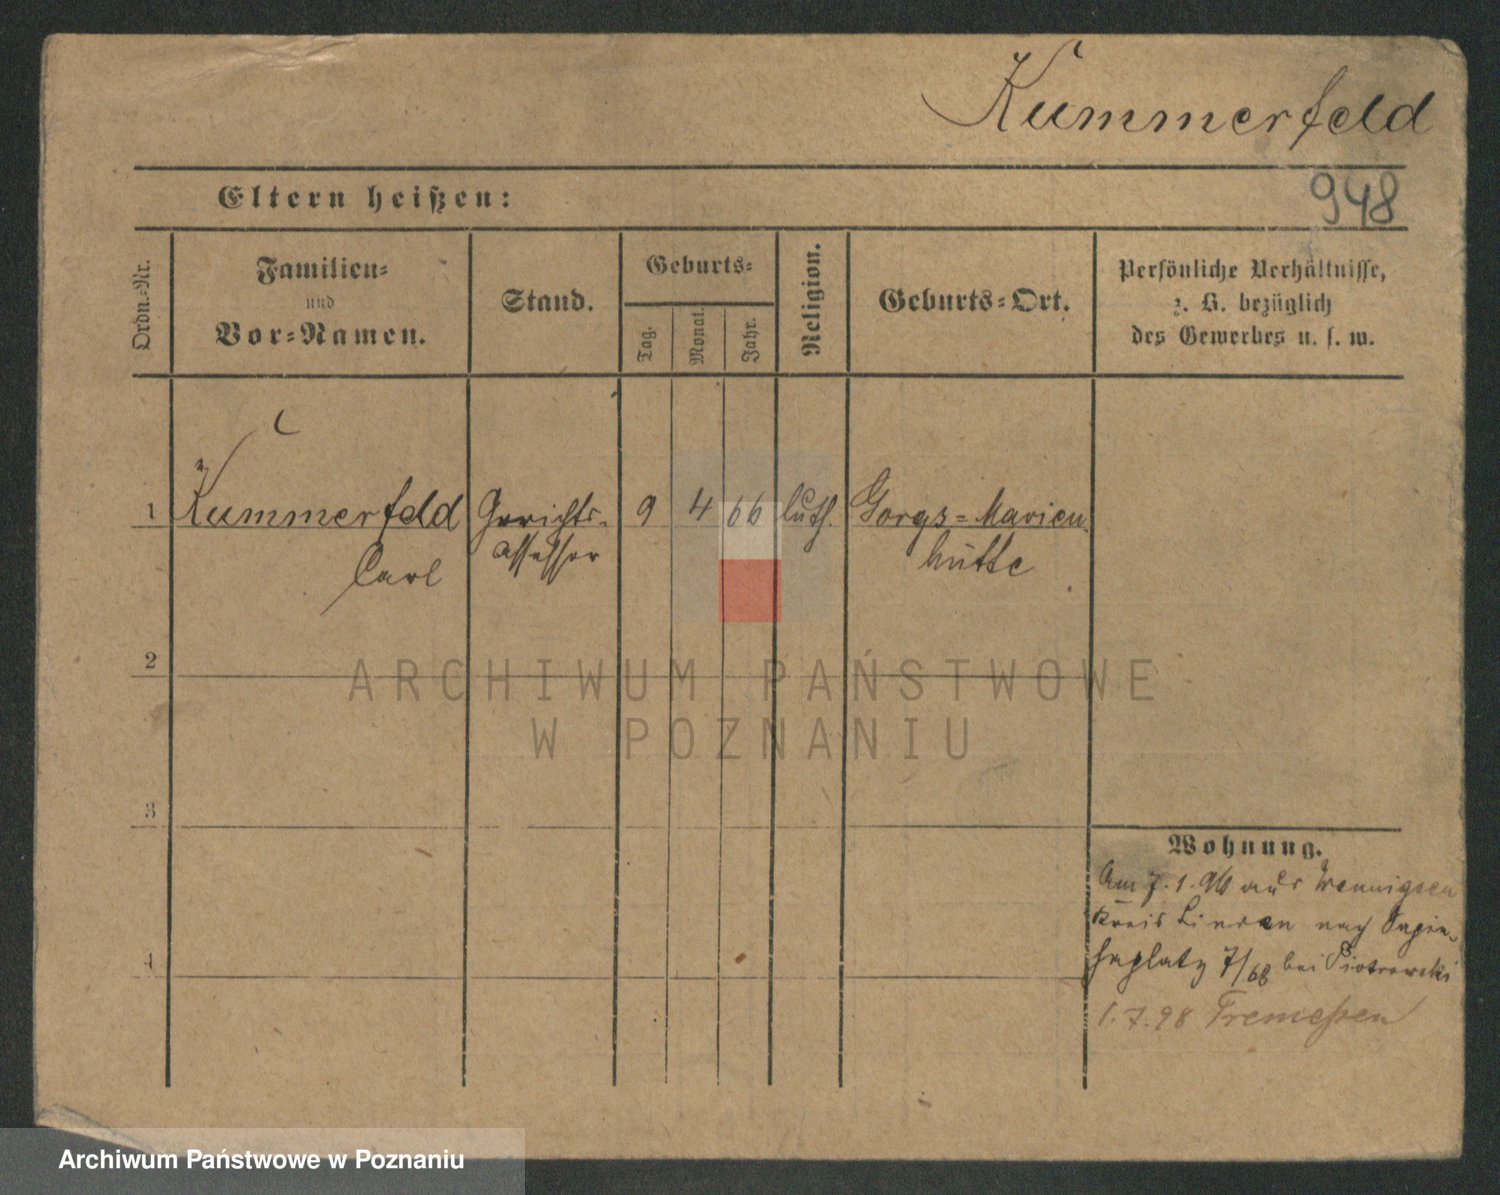 Kummerfeld
948
Eltern heißen:
Ordn.-Nr.
Familien-
und
Vor-Namen.
Stand.
Geburts-
Tag.
Monat.
Jahr.
Religion.
Geburts-Ort.
Persönliche Verhältnisse,
z. B. bezüglich
des Gewerbes u. s. w.
1 Kummerfeld Gerichts- 9 4 66 luth. Gorgs-Marien
Carl assessor hütte
2
ARCHIWUM PAŃSTWOWE
W POZNANIU
3
Wohnung.
Am 7.1.96 aus Wennigsen
Kreis Linden nach Sapie-
4
haplatz 7/68 bei Piotrowski
1.7.98 Tremessen
Archiwum Państwowe w Poznaniu